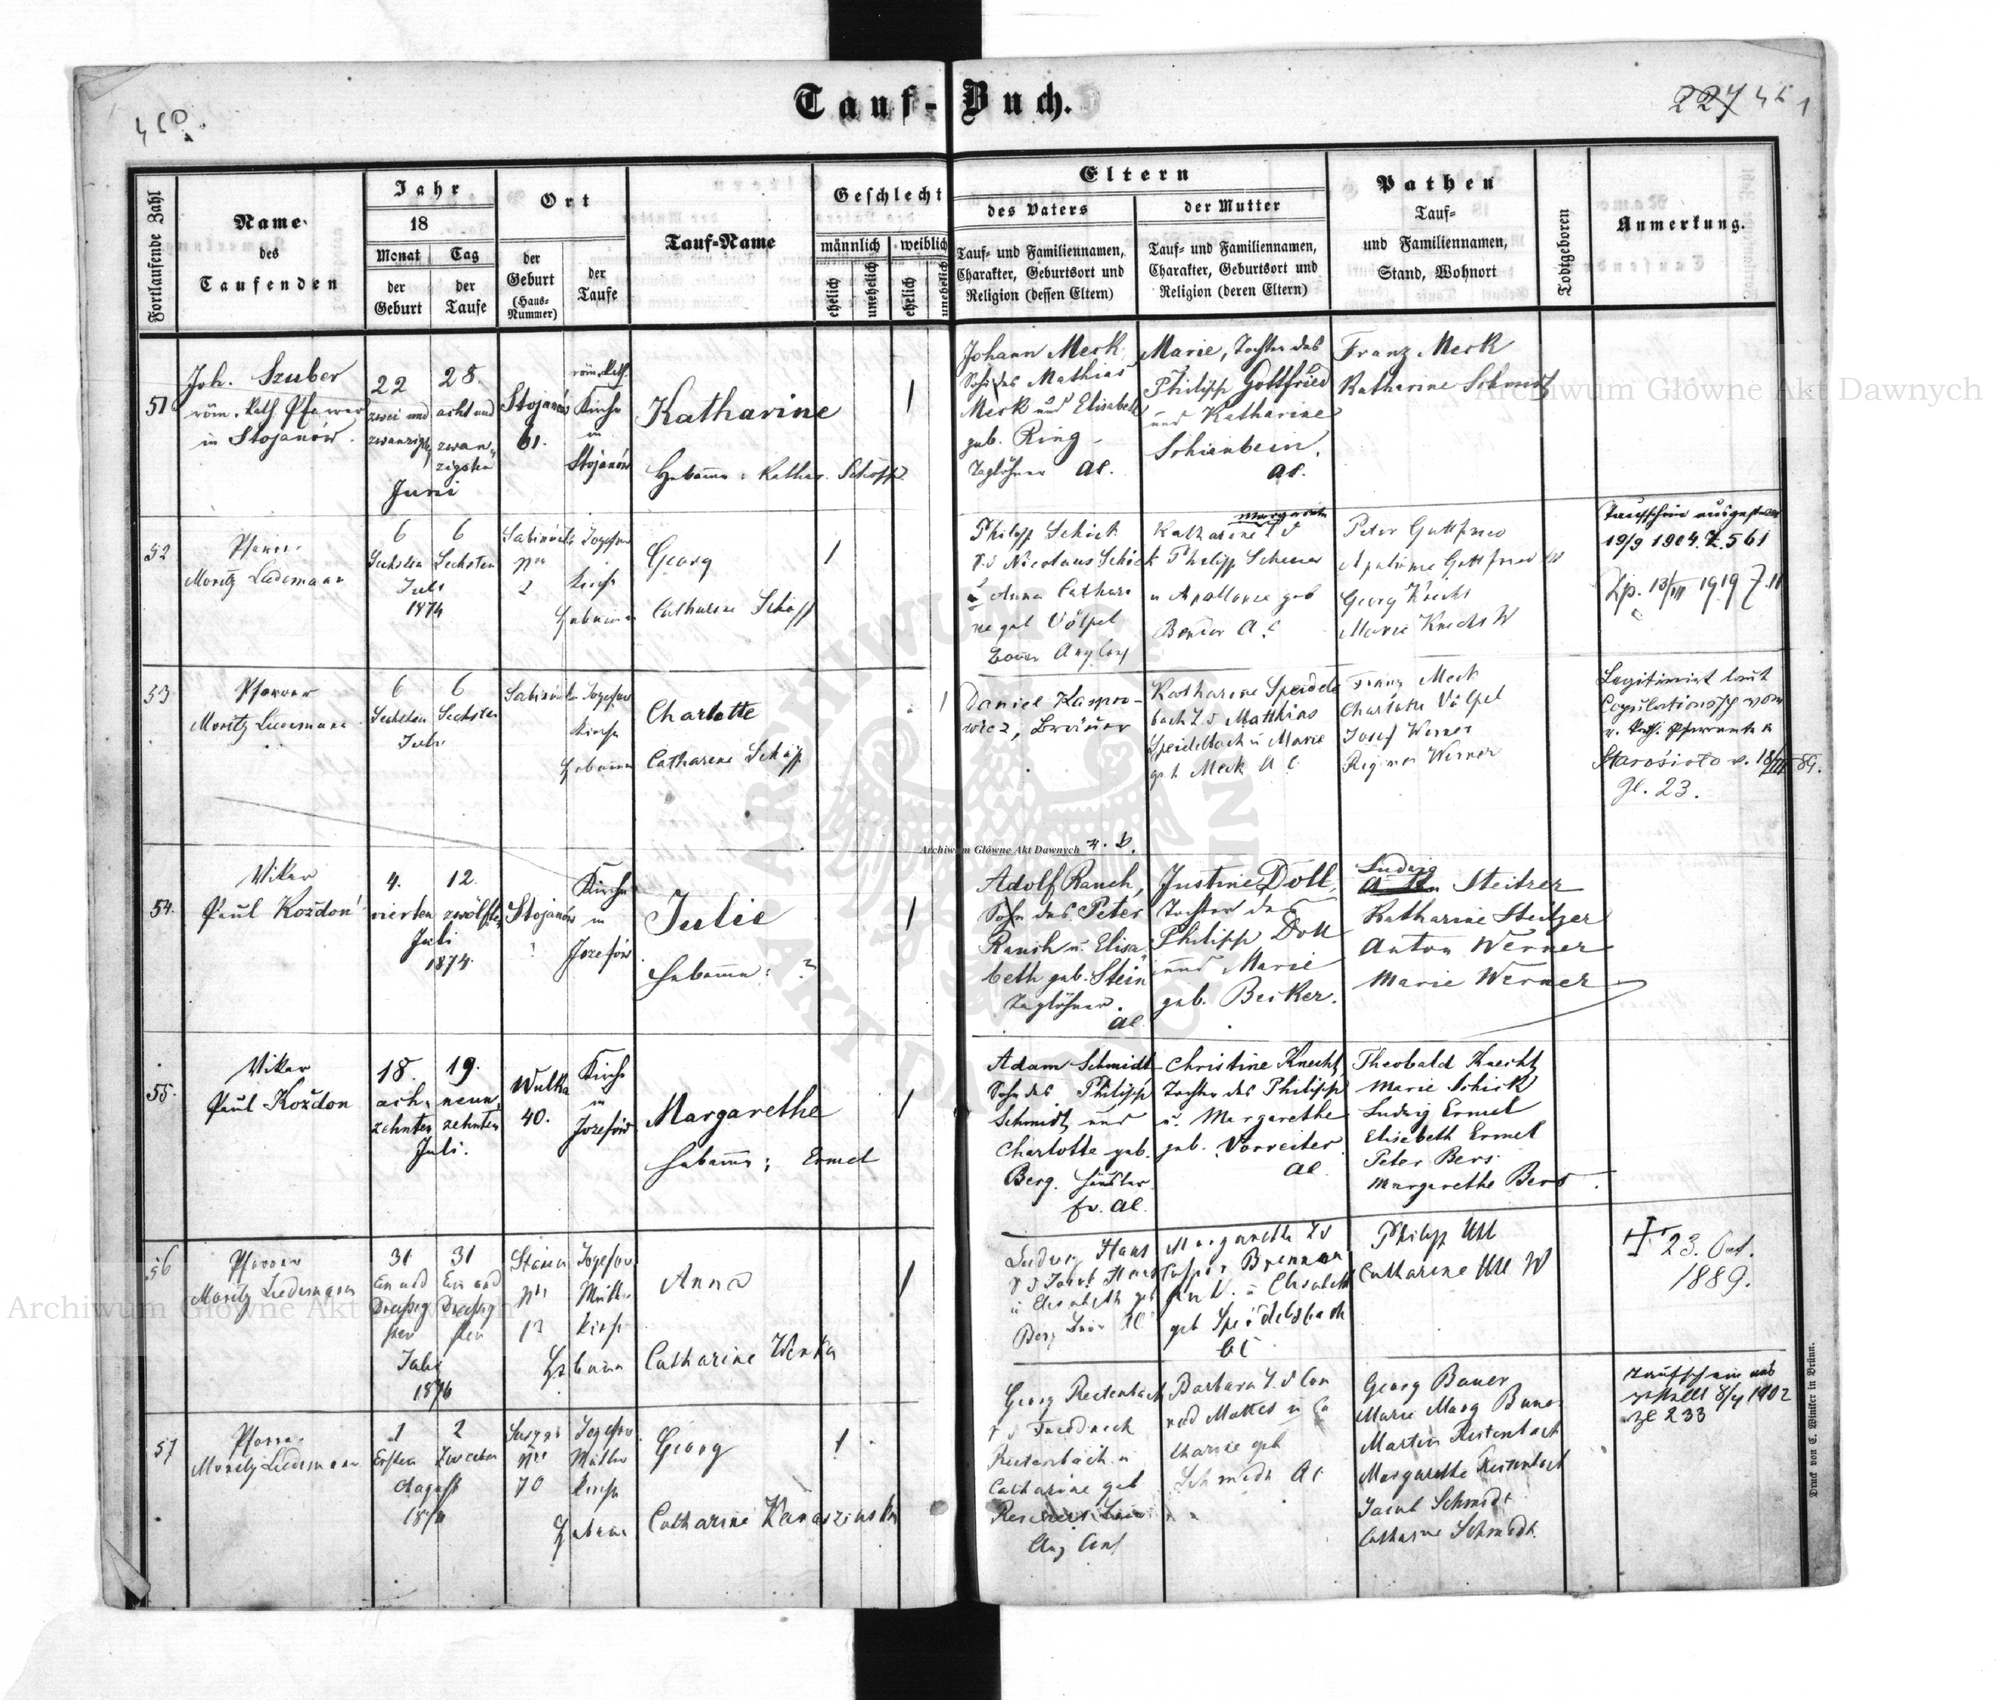 450.
Tauf-Buch.
227 451
Fortlaufende Zahl
Name
des
Taufenden
Jahr
18
Monat
Tag
der
Geburt
der
Taufe
Ort
der
Geburt
(Haus-
Nummer)
der
Taufe
Tauf-Name
Geschlecht
männlich
weiblich
ehelich
unehelich
ehelich
unehelich
Eltern
des Vaters
Tauf- und Familiennamen,
Charakter, Geburtsort und
Religion (dessen Eltern)
der Mutter
Tauf- und Familiennamen,
Charakter, Geburtsort und
Religion (deren Eltern)
Pathen
Tauf-
und Familiennamen,
Stand, Wohnort
Todtgeboren
Anmerkung.
51
Joh. Szuber
röm. kath. Pfarrer
in Stojanów.
22
zwei und
zwanzigsten
28.
acht und
zwan-
zigsten
Juni
Stojanów
61.
röm. kath.
Kirche
in
Stojanów
Katharine
Hebamme: Kathar. Schöpp
1
Johann Merk
Sohn des Mathias
Merk und Elisabeth
geb. Ring
Taglöhner AC.
Marie, Tochter des
Philipp Gottfried
und Katharine
Schienbein.
AC.
Franz Merk
Katharine Schmidt
52
Pfarrer
Moritz Ludemann
6
Sechsten
6
Sechsten
Juli
1874
2
Jozefow
Kirche
Hebamme
Georg
Catharine Schöpp
1
Philipp Schick
S d Nicolaus Schick
u Anna Cathari
ne geb Völpel
Margarethe
Katharine T d
Philipp Scherer
u Apollonie geb
Bender A C
Peter Gottfried
Apolonie Gottfried
Georg Knecht
Marie Knecht W
Taufschein ausgestellt
19/9 1904. Z. 561
Zp. 13/VII 1919 Z. 11
53
Pfarrer
Moritz Ludemann
6
Sechsten
6
Sechsten
Juli
Jozefow
Kirche
Hebamme
Charlotte
Catharine Schöpp
1
Daniel Kaspro-
wicz, Bräuer
Katharine Speidels
bach T d Matthias
Speidelbach u Marie
geb Merk A C
Franz Merk
Charlotte Völpel
Josef Werner
Regina Werner
Legitimirt laut
Copulationssch vom
r. kath. Pfarramte in
Starosioło v. 18/III 89.
Zl. 23.
54.
Vikar
Paul Koždoń
4.
vierten
12.
zwölften
Juli
1874.
Stojanów
?
Kirche
in
Jozefów
Julie
Hebamme: ?
1
Adolf Rauch,
Sohn des Peter
Rauch u. Elisa-
beth geb. Stein
Taglöhner.
AC
Justine Doll,
Tochter des
Philipp Doll
und Marie
geb. Becker.
Ludwig
Steitzer
Katharine Steitzer
Anton Werner
Marie Werner
55.
Vikar
Paul Koždon
18.
acht-
zehnten
19.
neun-
zehnten
Juli.
Wulka
40.
Kirche
in
Jozefów
Margarethe
Hebamme: Ermel
1
Adam Schmidt
Sohn des Philipp
Schmidt und
Charlotte geb.
Berg. Händler
ev. AC.
Christine Knecht,
Tochter des Philipp
u. Margarethe
geb. Vorreiter
AC
Theobald Knecht
Marie Schick
Ludwig Ermel
Elisabeth Ermel
Peter Bers
Margarethe Bers
56
Pfarrer
Moritz Ludemann
31
Ein und
Dreißig
sten
31
Ein und
Dreißig
sten
Juli
1876
13
Jozefow
Mutter
Kirche
Hebamme
Anna
Catharine Wenka
1
Ludwig Haas
S d Jacob Haas
u Elisabeth geb
Berg AC
Margarethe T d
Caspar Brenner
u Elisabeth
geb Speidelsbach
AC
Philipp Utt
Catharine Utt W
† 23. Oct.
1889.
57
Pfarrer
Moritz Ludemann
1
Ersten
2
Zweiten
August
70
Jozefow
Mutter
Kirche
Hebamme
Georg
1
Georg Reitenbach
S d Friedrich
Reitenbach u
Catharine geb
Barbara T d Con
rad Mattes u Ca
tharine geb
Schmidt AC
Georg Bauer
Marie Marg Bauer
Martin Reitenbach
Margarethe Reitenbach
Jacob Schmidt
Catharine Schmidt
Taufschein aus
gestellt 8/4 1902
Zl 233
Druck von C. Winiker in Brünn.
Archiwum Główne Akt Dawnych
Archiwum Główne Akt Dawnych
Archiwum Główne Akt Dawnych